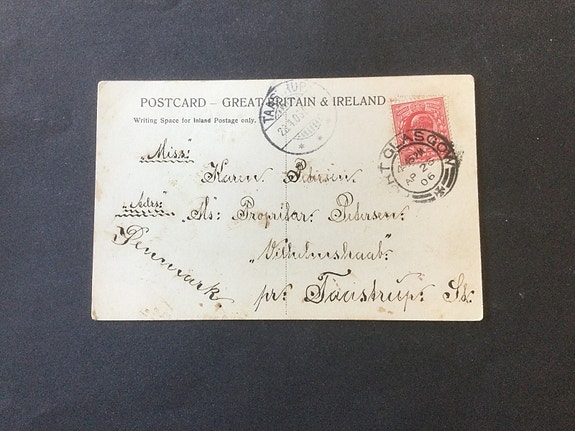 POSTCARD – GREAT BRITAIN & IRELAND
Writing Space for Inland Postage only.
PORT GLASGOW
AP 2
06
"Miss"
Karen Petersen.
"Adrs:"
Propritær Petersen.
"Vilhelmshaab"
Denmark
pr: Taastrup. St: